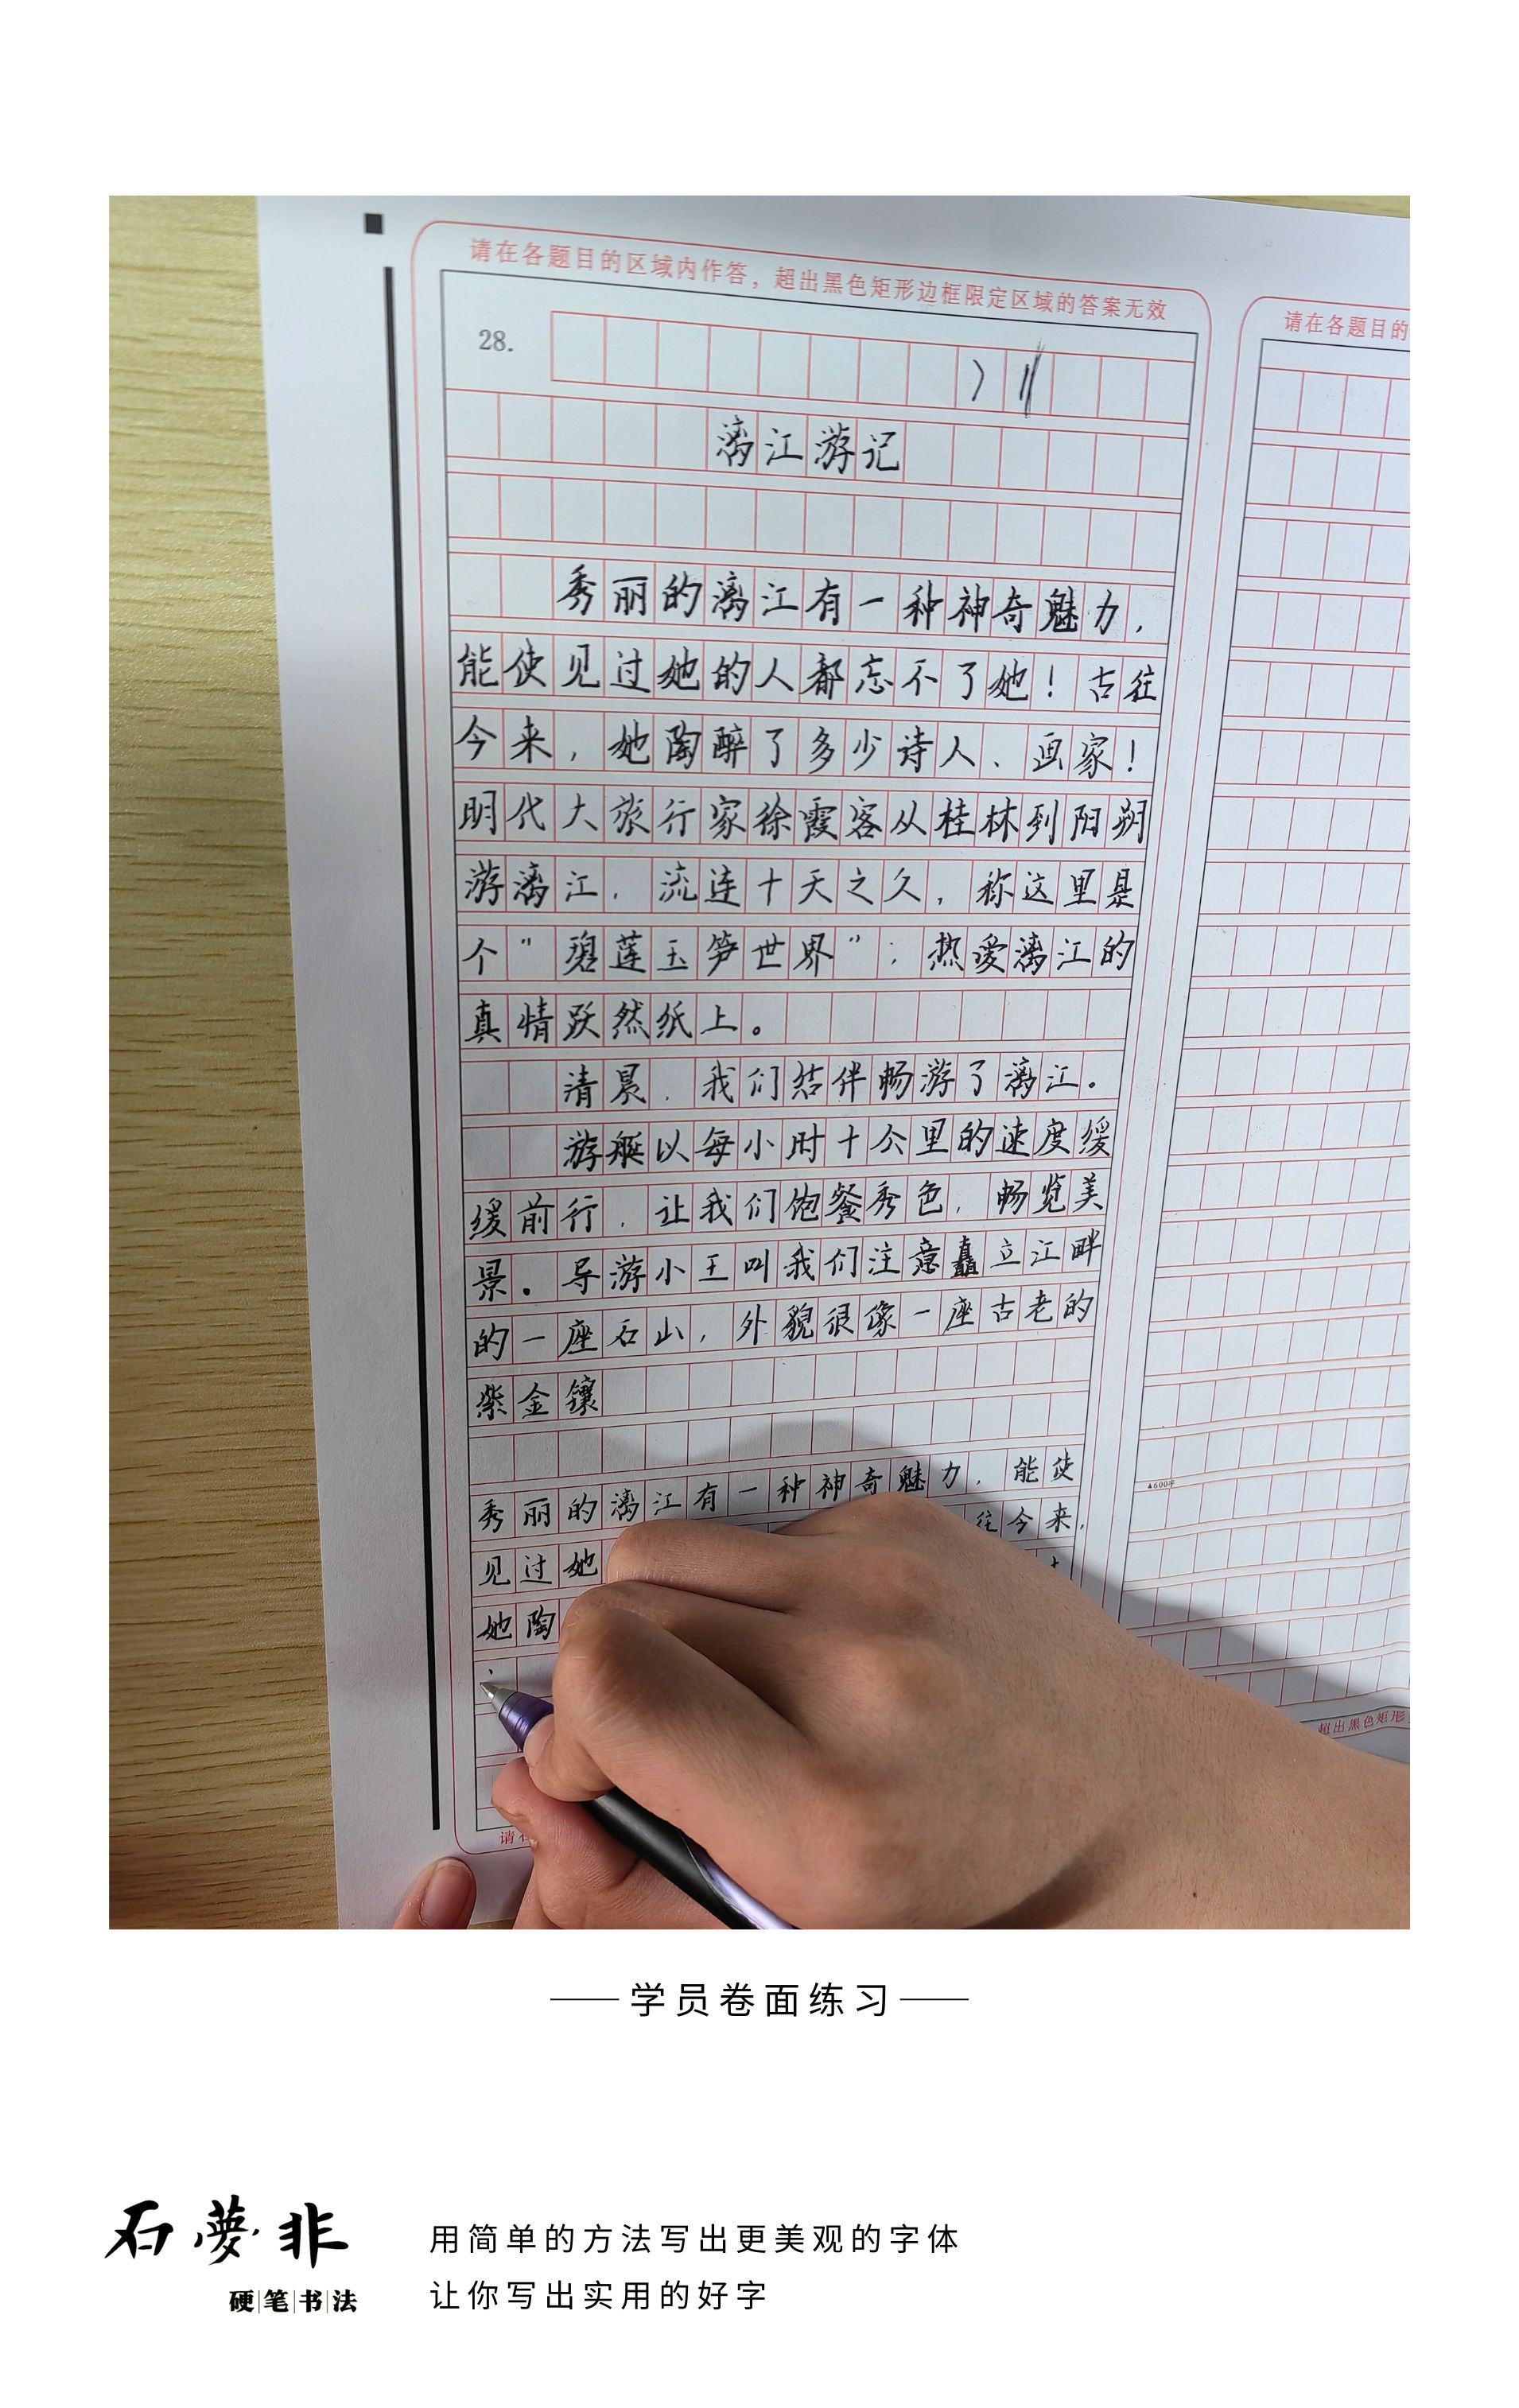 请在各题目的区域内作答，超出黑色矩形边框限定区域的答案无效
请在各题目的
28.
漓江游记
秀丽的漓江有一种神奇魅力，
能使见过她的人都忘不了她！古往
今来，她陶醉了多少诗人、画家！
明代大旅行家徐霞客从桂林到阳朔
游漓江，流连十天之久，称这里是
个“碧莲玉笋世界”；热爱漓江的
真情跃然纸上。
清晨，我们结伴畅游了漓江。
游艇以每小时十公里的速度缓
缓前行，让我们饱餐秀色，畅览美
景。导游小王叫我们注意矗立江畔
的一座石山，外貌很像一座古老的
紫金镶
秀丽的漓江有一种神奇魅力，能使
见过她 往今来，
她陶
▲600字
超出黑色矩形
请
学员卷面练习
石夢非
硬笔书法
用简单的方法写出更美观的字体
让你写出实用的好字